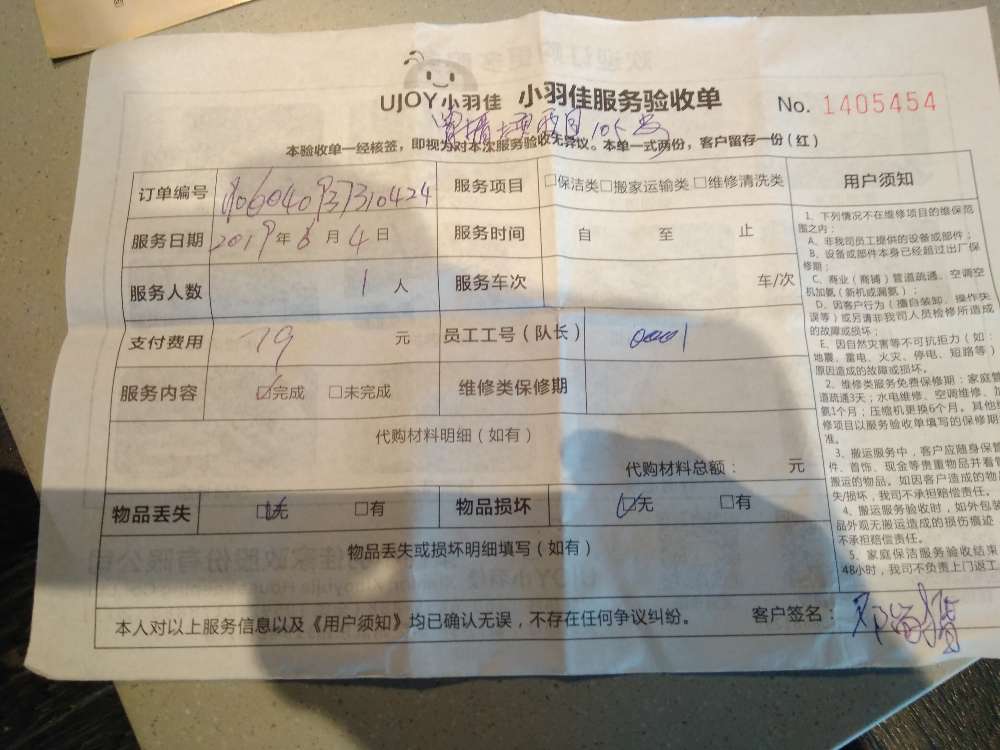 UJOY小羽佳 小羽佳服务验收单 No. 1405454
本验收单一经核签，即视为对本次服务验收无异议。本单一式两份，客户留存一份（红）
订单编号 服务项目 □保洁类□搬家运输类□维修清洗类 用户须知
服务日期 2019年6月4日 服务时间 自 至 止
服务人数 1人 服务车次 车/次
支付费用 19元 员工工号（队长） 0001
服务内容 ☑完成 □未完成 维修类保修期
代购材料明细（如有）
代购材料总额： 元
物品丢失 ☑无 □有 物品损坏 ☑无 □有
物品丢失或损坏明细填写（如有）
本人对以上服务信息以及《用户须知》均已确认无误，不存在任何争议纠纷。 客户签名：
1、下列情况不在维修项目的维保范
围之内：
A、非我司员工提供的设备或部件；
B、设备或部件本身已经超过出厂保
修期；
C、商业（商铺）管道疏通、空调空
机加氨（新机或漏氨）；
D、因客户行为（擅自装卸、操作失
误等）或另请非我司人员检修所造成
的故障或损坏；
E、因自然灾害等不可抗拒力（如：
地震、雷电、火灾、停电、短路等）
原因造成的故障或损坏。
2、维修类服务免费保修期：家庭管
道疏通3天；水电维修、空调维修、加
氨1个月；压缩机更换6个月。其他维
修项目以服务验收单填写的保修期
准。
3、搬运服务中，客户应随身保管
件、首饰、现金等贵重物品并看管
搬运的物品。如因客户造成的物品
失/损坏，我司不承担赔偿责任。
4、搬运服务验收时，如外包装
品外观无搬运造成的损伤痕迹
不承担赔偿责任。
5、家庭保洁服务验收结束
48小时，我司不负责上门返工